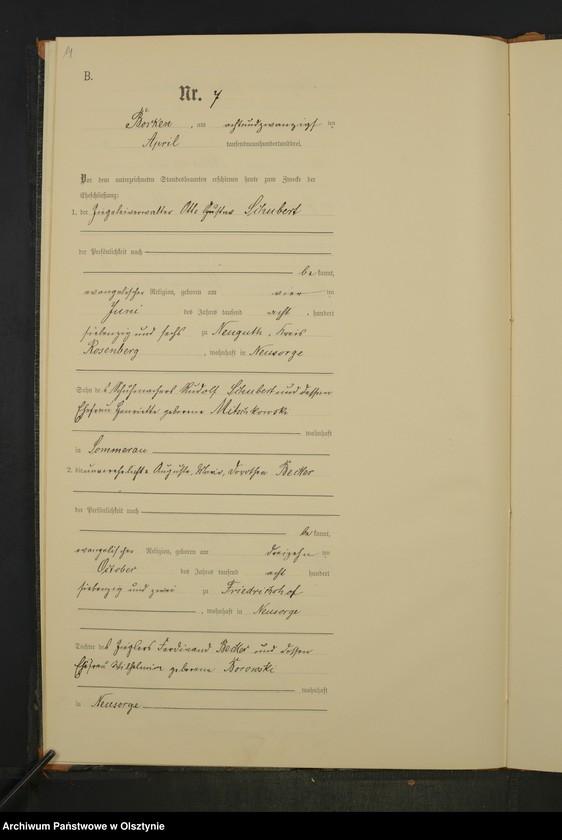 B.
Nr. 7
Borken, am achtundzwanzigsten
April tausendneunhundertunddrei.
Vor dem unterzeichneten Standesbeamten erschienen heute zum Zwecke der
Eheschließung:
1. der Ziegeleiverwalter Otto Gustav Schubert
der Persönlichkeit nach
bekannt,
evangelischer Religion, geboren am vierten
Juni des Jahres tausend acht hundert
siebenzig und sechs zu Neuguth, Kreis
Rosenberg, wohnhaft in Neusorge
Sohn des Schuhmachers Rudolf Schubert und dessen
Ehefrau Henriette geborene
wohnhaft
in Sommerau
2. die unverehelichte Auguste, Marie, Dorothea Becker
der Persönlichkeit nach
bekannt,
evangelischer Religion, geboren am dreizehnten
October des Jahres tausend acht hundert
siebenzig und zwei zu Friedrikshof
, wohnhaft in Neusorge
Tochter des Zieglers Ferdinand Becker und dessen
Ehefrau Wilhelmine geborene Borowski
wohnhaft
in Neusorge
Archiwum Państwowe w Olsztynie